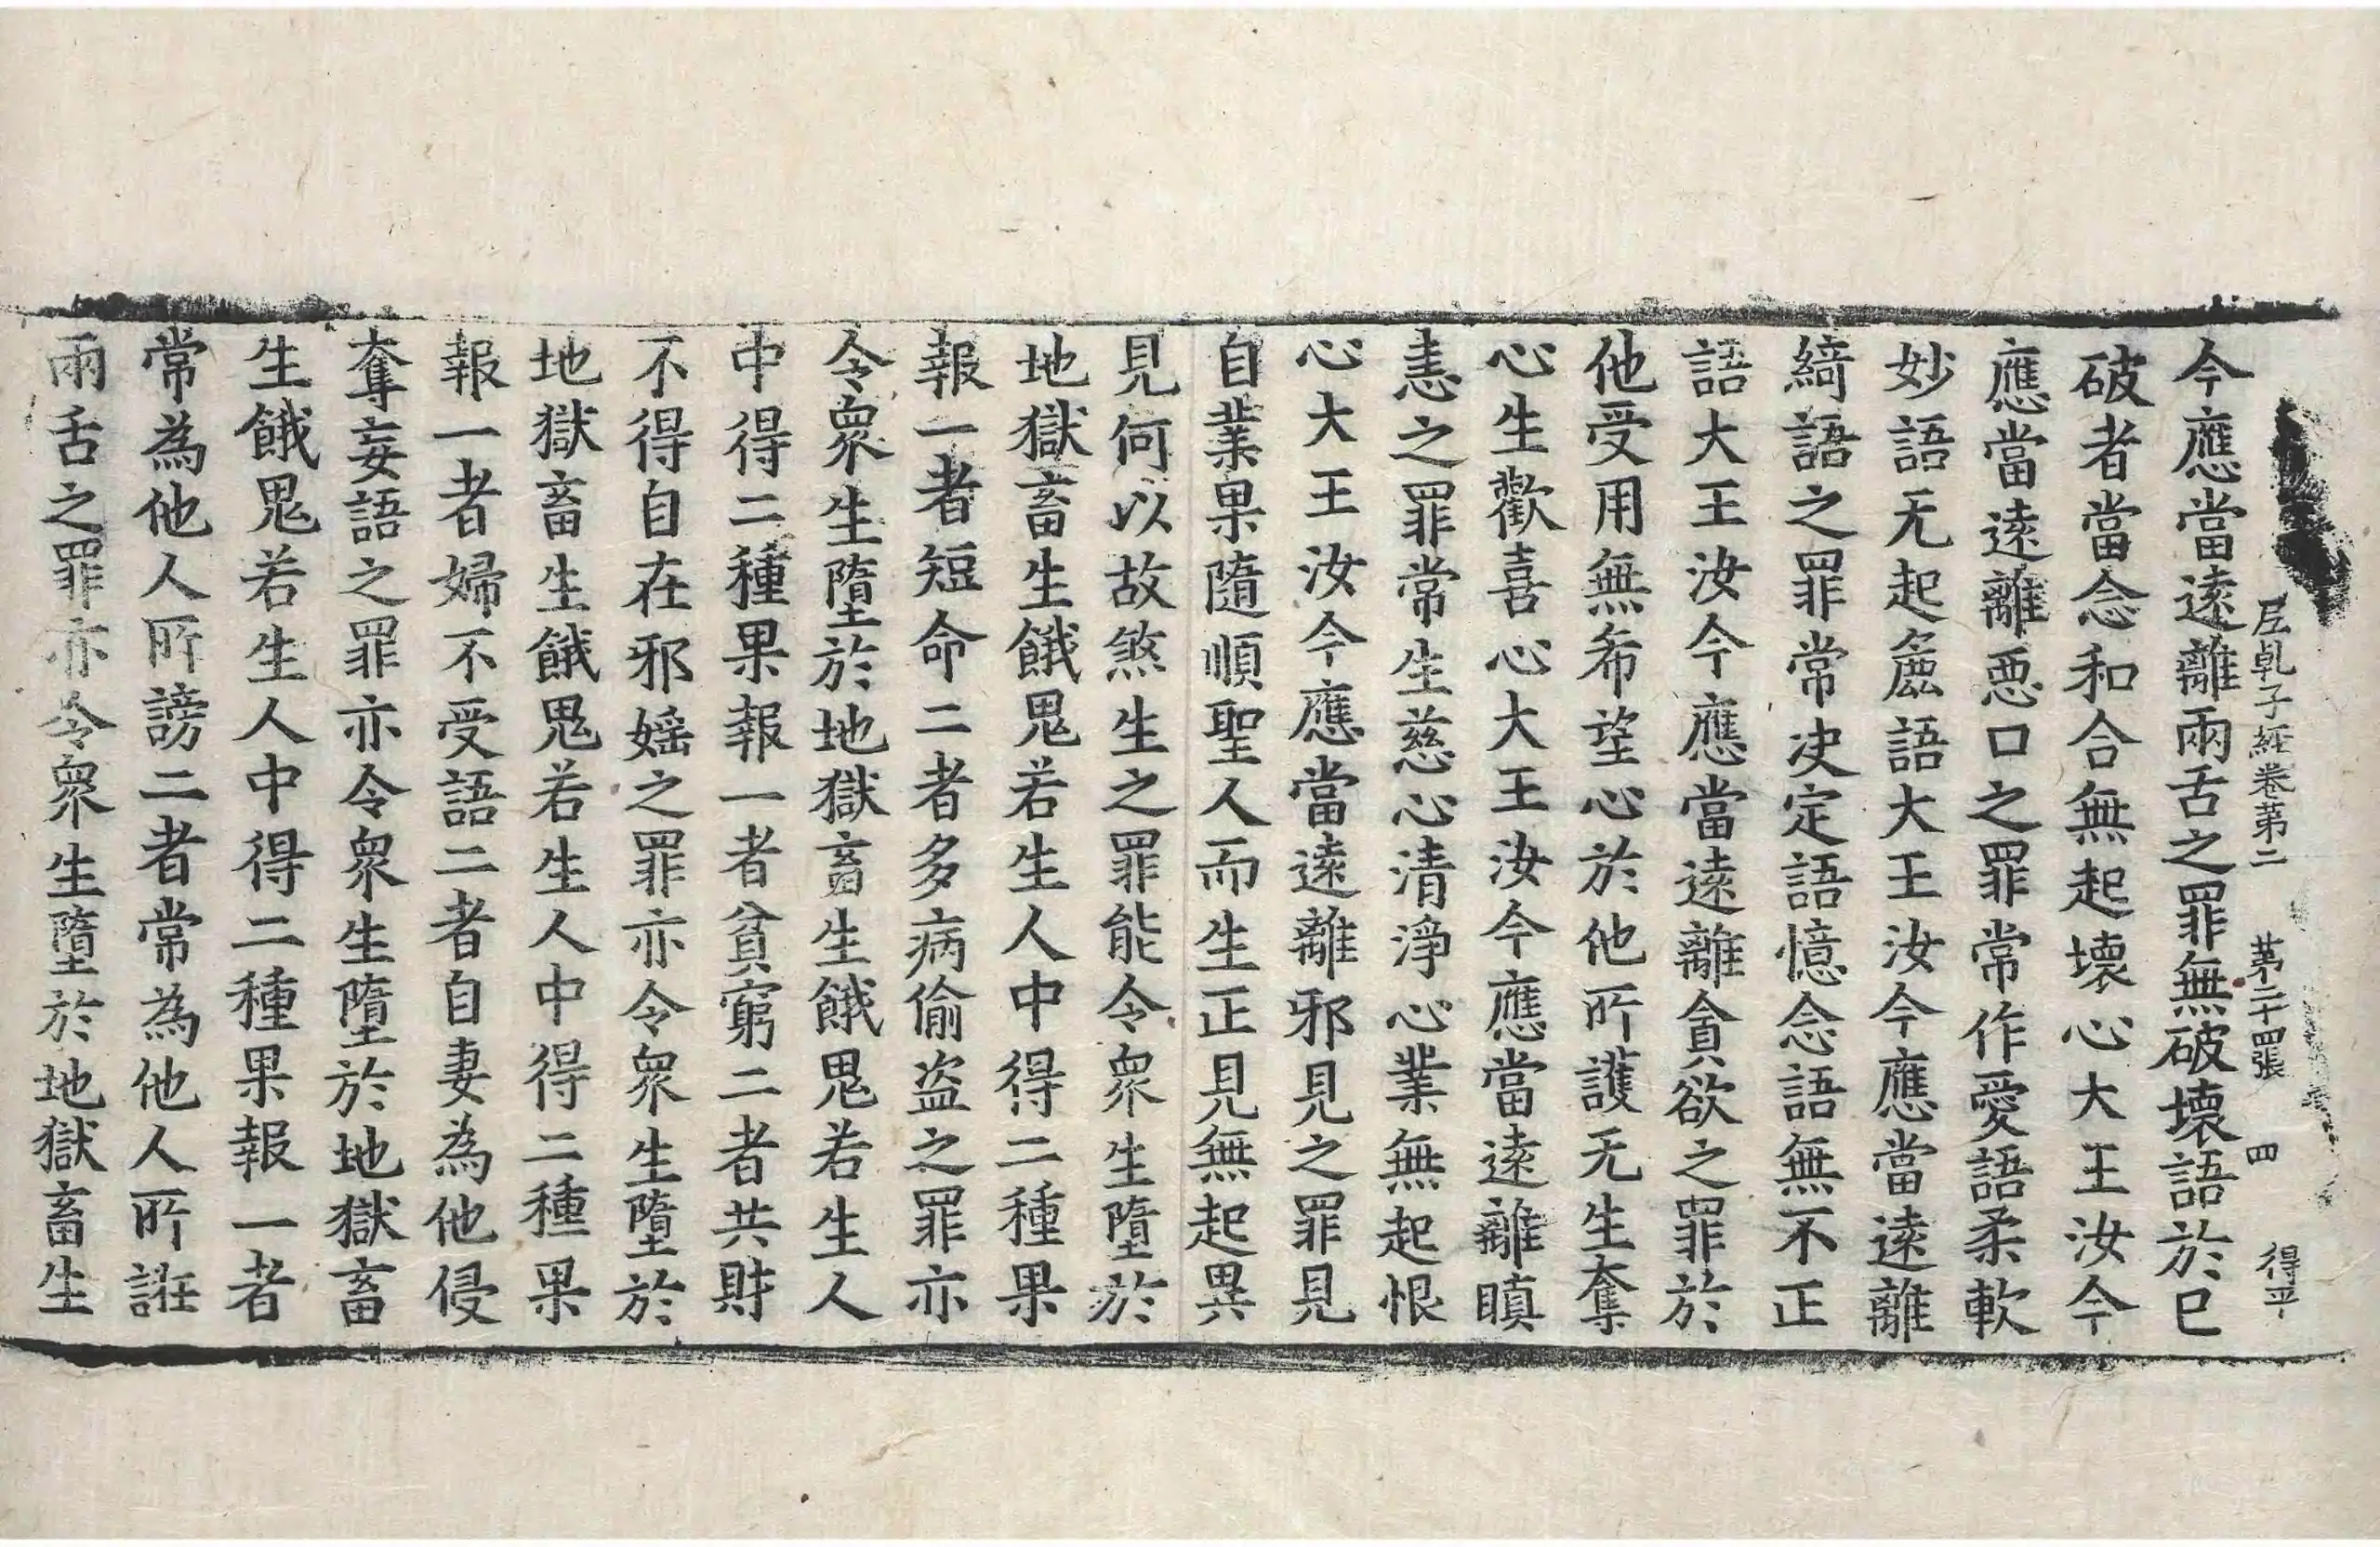 尼乹子経卷苐二　苐二十四張　四　得平
今應當逺離兩舌之罪無破壞語於已
破者當念和合無起壞心大王汝今
應當逺離惡口之罪常作愛語柔軟
妙語无起麁語大王汝今應當逺離
綺語之罪常决定語憶念語無不正
語大王汝今應當逺離貪欲之罪於
他受用無希望心於他所護无生奪
心生歡喜心大王汝今應當逺離瞋
恚之罪常生慈心清淨心業無起恨
心大王汝今應當逺離邪見之罪見
自業果隨順聖人而生正見無起異
見何以故煞生之罪能令衆生墮於
地獄畜生餓鬼若生人中得二種果
報一者短命二者多病偷盗之罪亦
令衆生墮於地獄畜生餓鬼若生人
中得二種果報一者貧窮二者共財
不得自在邪婬之罪亦令衆生墮於
地獄畜生餓鬼若生人中得二種果
報一者婦不受語二者自妻為他侵
奪妄語之罪亦令衆生墮於地獄畜
生餓鬼若生人中得二種果報一者
常為他人所謗二者常為他人所誑
兩舌之罪亦令衆生墮於地獄畜生